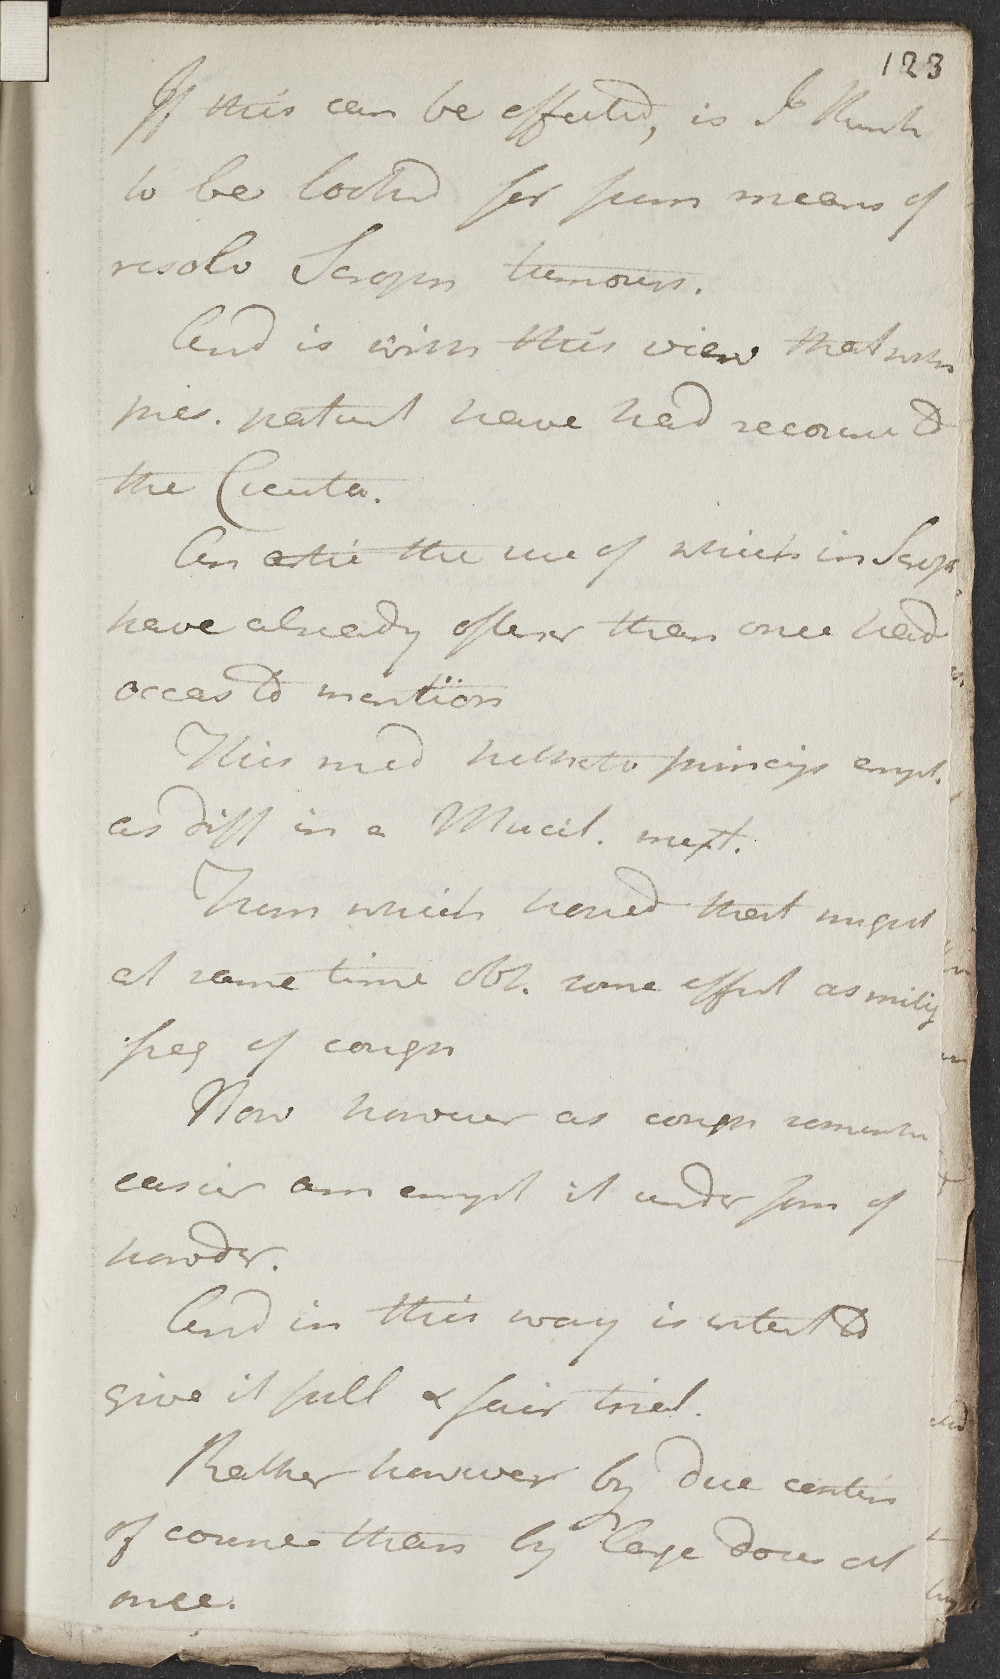 123
If this can be effected, is I think
to be looked for from means of
resolv Scroph tumours.
And is with this view that with
pres. patient have had recourse to
the Cicuta.
An artic the use of which in Scroph
have already oftener than once had
occas to mention
This med hitherto princip empl.
as diff in a Mucil. mixt.
From which hoped that might
at same time obt. some effect as mitig
freq of cough
Now however as cough somewh
easier am empl it under form of
powder.
And in this way is intent to
give it full & fair trial.
Rather however by due contin
of course than by large doses at
once.